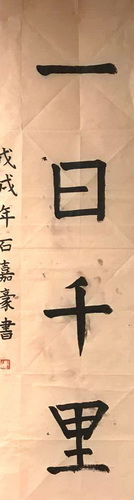 一日千里
戊戌年石嘉豪書